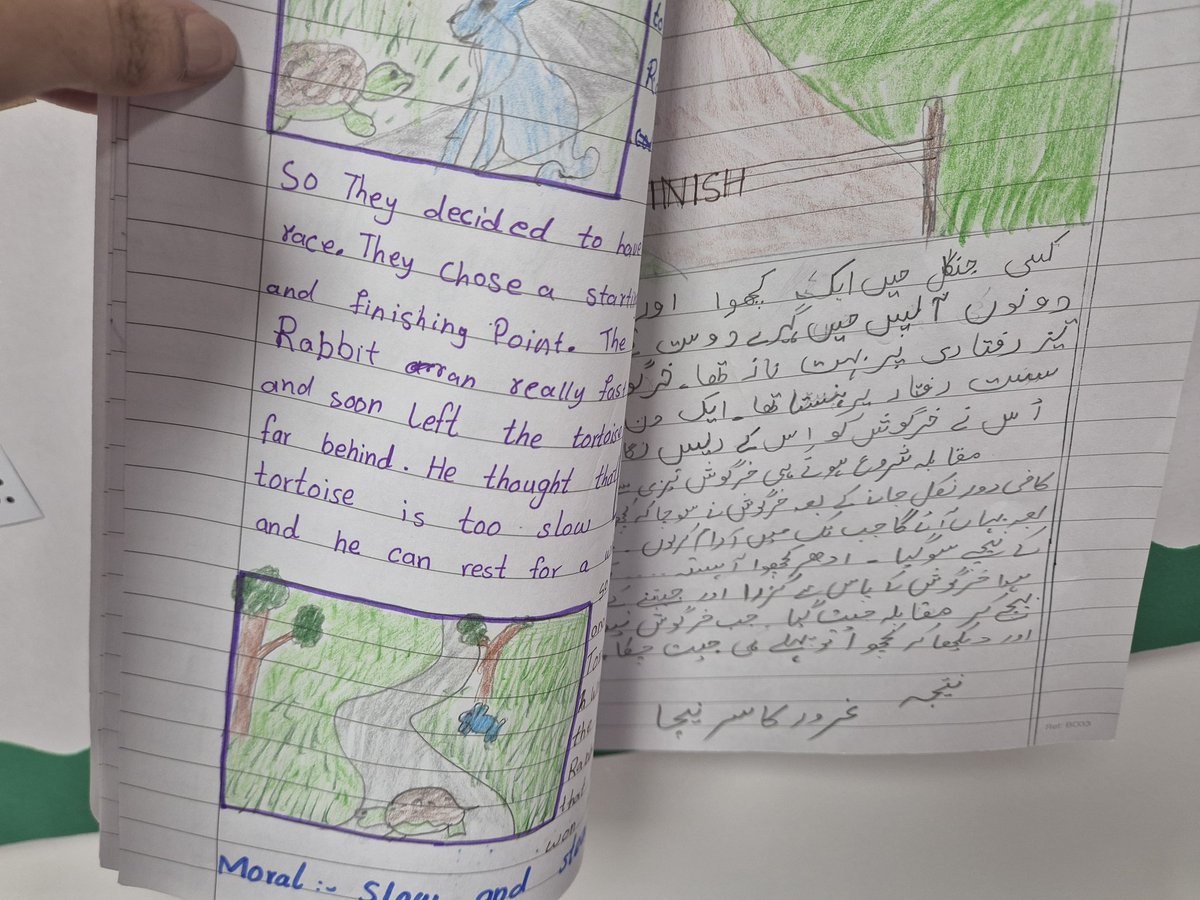 So They decided to have
race. They Chose a starti
and finishing Point. The
Rabbit ran really fas
and soon left the tortoise
far behind. He thought that
tortoise is too slow
and he can rest for a
Moral :- Slow and
INISH
کسی جنگل میں ایک کچھوا اور
دونوں آپس میں گہرے دوست
تیز رفتاری پر بہت ناز تھا۔ خرگو
سست رفتار پر ہنستا تھا۔ ایک دن
اس نے خرگوش کو اس کے ریس
مقابلہ شروع ہوتے ہی خرگوش تیزی
کافی دور نکل جانے کے بعد خرگوش نے سوچا کہ
بعد یہاں آئے گا جب تک میں آرام کرلوں
کے نیچے سو گیا - ادھر کچھوا آہستہ
ہوا خرگوش کے پاس سے گزرا اور جیتنے کے
پہنچ کر مقابلہ جیت گیا جب خرگوش
اور دیکھا کہ کچھوا تو پہلے ہی جیت چکا
نتیجہ
غرور کا سر نیچا
Ref: 8003